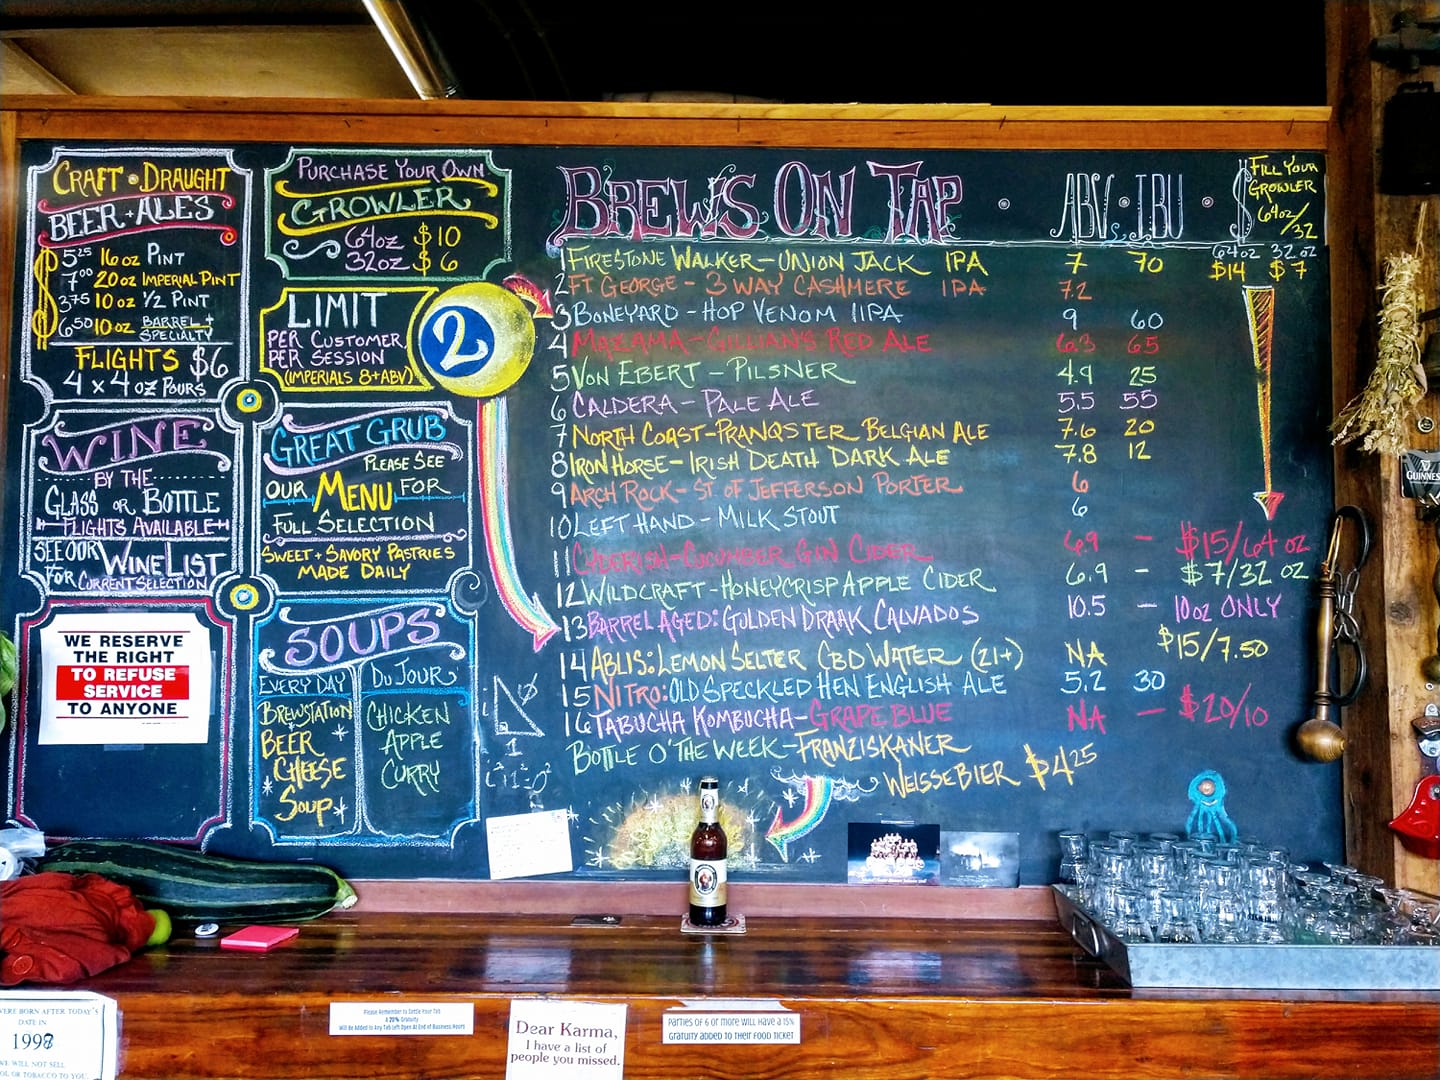 CRAFT · DRAUGHT
BEER + ALES
$ 5.25 16 oz PINT
7.00 20 oz IMPERIAL PINT
3.75 10 oz ½ PINT
6.50 10 oz BARREL + SPECIALTY
FLIGHTS $6
4 x 4 oz POURS
WINE
BY THE
GLASS OR BOTTLE
FLIGHTS AVAILABLE
SEE OUR WINE LIST
FOR CURRENT SELECTION
WE RESERVE
THE RIGHT
TO REFUSE
SERVICE
TO ANYONE
PURCHASE YOUR OWN
GROWLER
64oz $10
32oz $6
LIMIT
PER CUSTOMER
PER SESSION
(IMPERIALS 8+ABV)
2
GREAT GRUB
PLEASE SEE
OUR MENU FOR
FULL SELECTION
SWEET + SAVORY PASTRIES
MADE DAILY
SOUPS
EVERY DAY
BREWSTATION
BEER
CHEESE
SOUP
DU JOUR
CHICKEN
APPLE
CURRY
BREWS ON TAP · ABV · IBU · $ FILL YOUR GROWLER 64oz/32
64oz 32oz
1 FIRESTONE WALKER - UNION JACK IPA 7 70 $14 $7
2 FT GEORGE - 3 WAY CASHMERE IPA 7.2
3 BONEYARD - HOP VENOM IIPA 9 60
4 MAZAMA - GILLIAN'S RED ALE 6.3 65
5 VON EBERT - PILSNER 4.9 25
6 CALDERA - PALE ALE 5.5 55
7 NORTH COAST - PRANQSTER BELGIAN ALE 7.6 20
8 IRON HORSE - IRISH DEATH DARK ALE 7.8 12
9 ARCH ROCK - ST OF JEFFERSON PORTER 6
10 LEFT HAND - MILK STOUT 6
11 CYDERISH - CUCUMBER GIN CIDER 6.9 - $15/64 oz
12 WILDCRAFT - HONEYCRISP APPLE CIDER 6.9 - $7/32 oz
13 BARREL AGED: GULDEN DRAAK CALVADOS 10.5 - 10oz ONLY
14 ABLIS: LEMON SELTER CBD WATER (21+) NA $15/7.50
15 NITRO: OLD SPECKLED HEN ENGLISH ALE 5.2 30
16 TABUCHA KOMBUCHA - GRAPE BLUE NA - $20/10
BOTTLE O' THE WEEK - FRANZISKANER
WEISSEBIER $4.25
GUINNESS
WERE BORN AFTER TODAY'S
DATE IN
1998
WE WILL NOT SELL
OL OR TOBACCO TO YOU
Please Remember to Settle Your Tab
A 20% Gratuity
Will Be Added to Any Tab Left Open At End of Business Hours
Dear Karma,
I have a list of
people you missed.
Parties of 6 or more will have a 15%
gratuity added to their food ticket